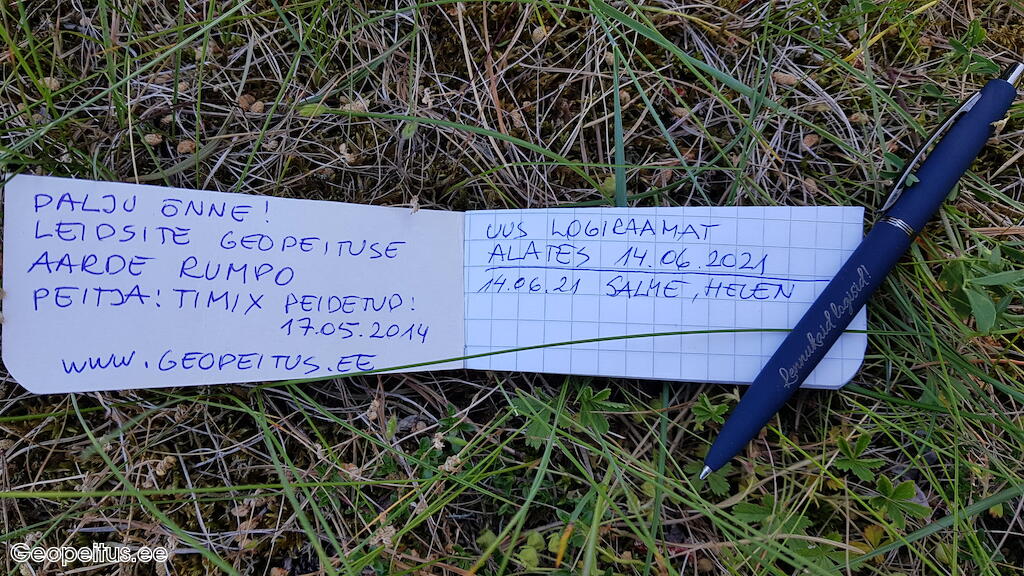 PALJU ÕNNE!
LEIDSITE GEOPEITUSE
AARDE RUMPO
PEITJA: TIMIX PEIDETUD:
17.05.2014
WWW.GEOPEITUS.EE
UUS LOGIRAAMAT
ALATES 14.06.2021
14.06.21 SALME, HELEN
Lennukaid logisid!
Geopeitus.ee